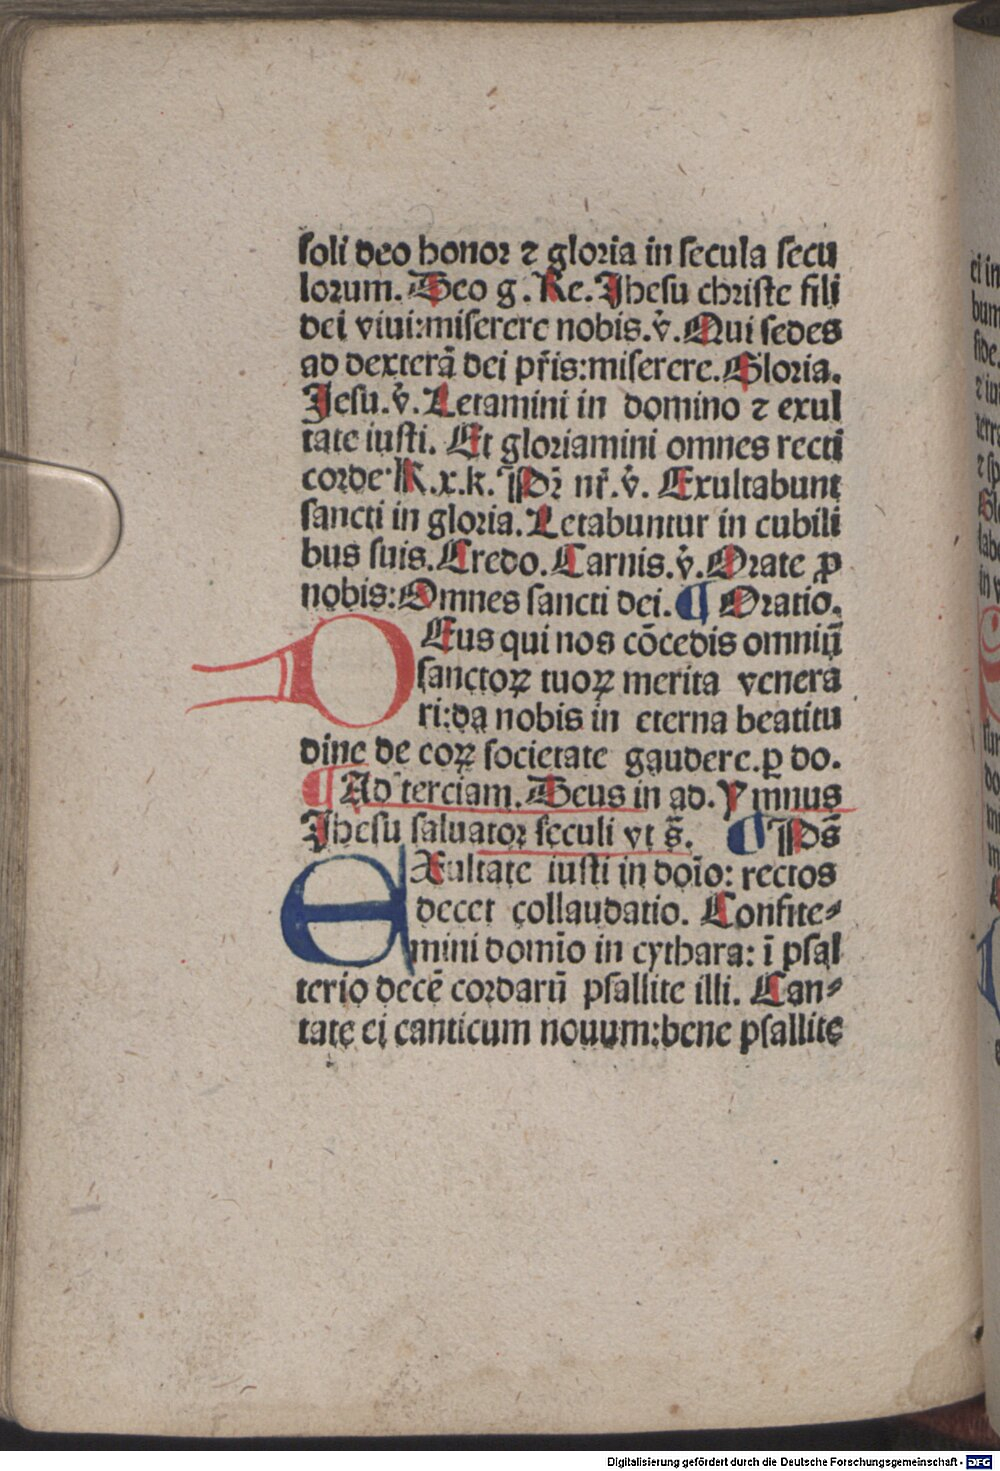 soli deo honor ⁊ gloria in secula secu
lorum. Deo g. Re. Jhesu christe fili
dei viui: miserere nobis. v̾. Qui sedes
ad dexterā dei pr̄is: miserere. Gloria.
Jesu. v̾. Letamini in domino ⁊ exul
tate iusti. Et gloriamini omnes recti
corde. K. x. k. Pr̄ nr̄. v̾. Exultabunt
sancti in gloria. Letabuntur in cubili
bus suis. Credo. Carnis. v̾. Orate ꝓ
nobis: Omnes sancti dei. ¶ Oratio.
DEus qui nos cōcedis omniū
sanctoꝝ tuoꝝ merita venera
ri: da nobis in eterna beatitu
dine de eoꝝ societate gaudere. ꝑ do.
¶ Ad terciam. Deus in ad. Ymnus
Jhesu saluator seculi vt s̄. ¶ Ps̄
EXultate iusti in doīo: rectos
decet collaudatio. Confite⸗
mini domīo in cythara: ī psal
terio decē cordarū psallite illi. Can⸗
tate ei canticum nouum: bene psallite
Digitalisierung gefördert durch die Deutsche Forschungsgemeinschaft - DFG